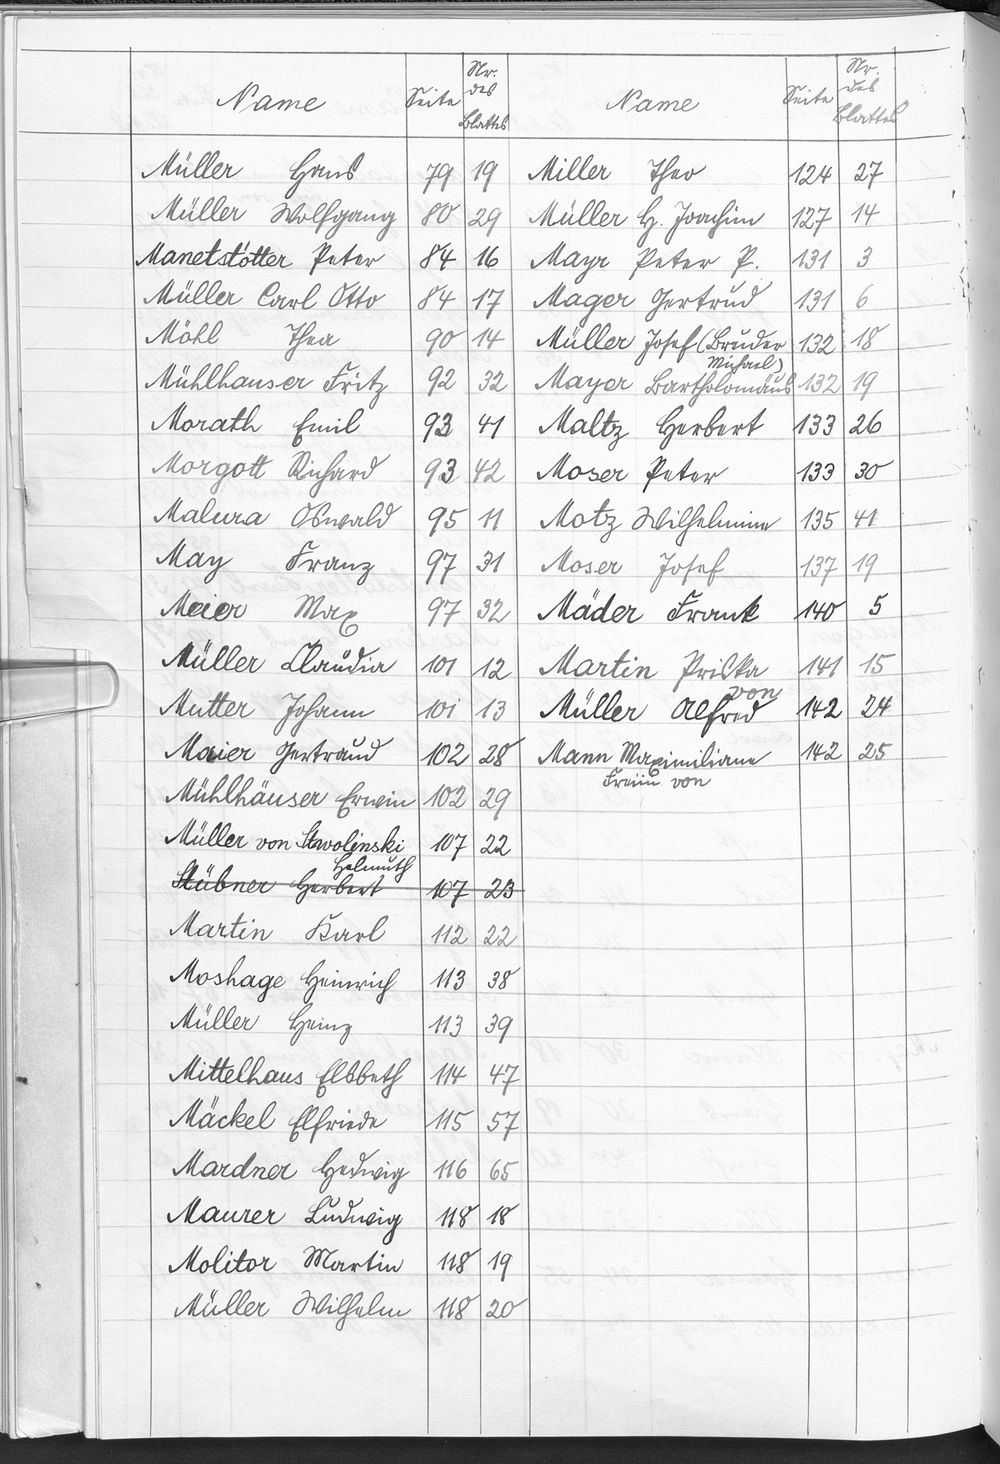 Name Seite Nr. des Blattes Name Seite Nr. des Blattes
Müller Hans 79 19
Müller Wolfgang 80 29
Manetstötter Peter 84 16
Müller Carl Otto 84 17
Möhl Thea 90 14
Mühlhauser Fritz 92 32
Morath Emil 93 41
Morgott Richard 93 42
Malura Oswald 95 11
May Franz 97 31
Meier Max 97 32
Müller Claudia 101 12
Mutter Johann 101 13
Maier Gertraud 102 28
Mühlhäuser Erwin 102 29
Müller von Stwolinski 107 22
Helmuth
Stübner Herbert 107 23
Martin Karl 112 22
Moshage Heinrich 113 38
Müller Heinz 113 39
Mittelhaus Elsbeth 114 47
Mäckel Elfriede 115 57
Mardner Hedwig 116 65
Maurer Ludwig 118 18
Molitor Martin 118 19
Müller Wilhelm 118 20
Miller Theo 124 27
Müller H. Joachim 127 14
Mayr Peter P. 131 3
Mager Gertrud 131 6
Müller Josef (Bruder 132 18
Michael)
Mayer Bartholomäus 132 19
Maltz Herbert 133 26
Moser Peter 133 30
Motz Wilhelmine 135 41
Moser Josef 137 19
Mäder Frank 140 5
Martin Priska 141 15
von
Müller Alfred 142 24
Mann Maximiliane 142 25
Freiin von